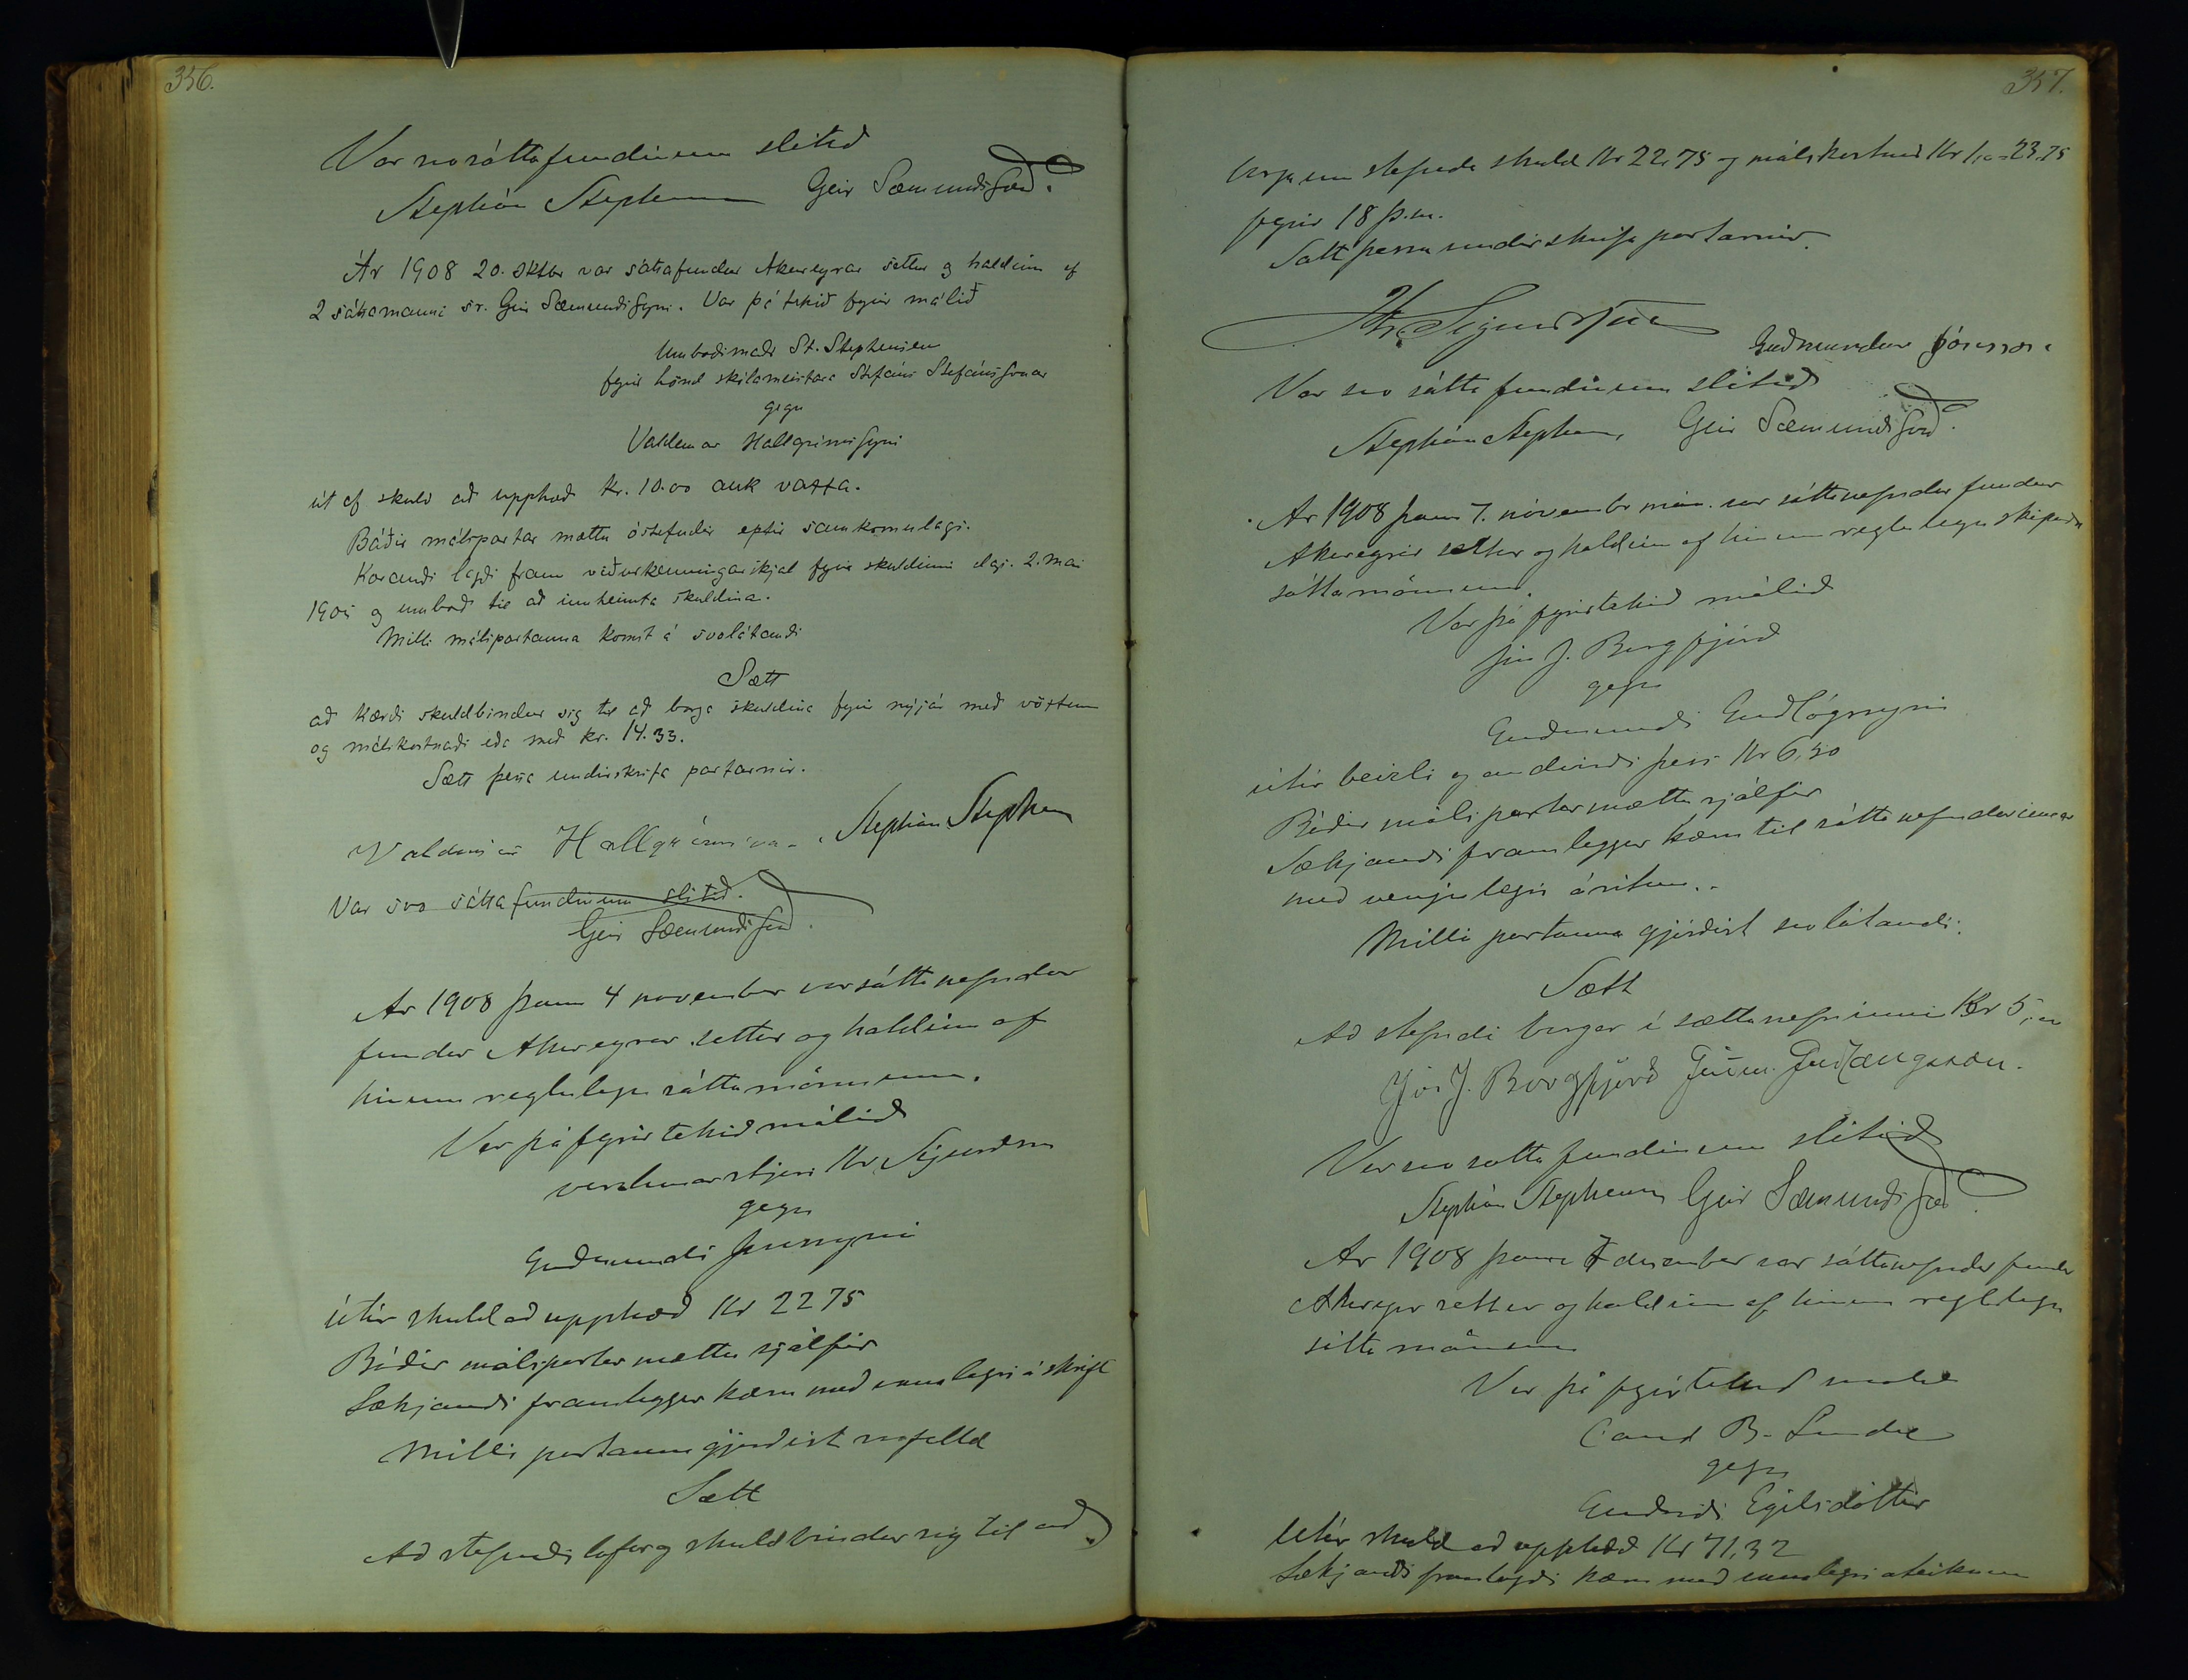 356.
Var svo sáttafundinum slitið
Stephán Stephensen Geir Sæmundsson.
Ár 1908 20. októbr var sáttafundur Akureyrar settur og haldinn af
2 sáttamanni sr. Geir Sæmundssyni. Var þá tekið fyrir málið
Umboðsmaðr St. Stephensen
fyrir hönd skólameistara Stefáns Stefánssonar
gegn
Valdemar Hallgrímssyni
út af skuld að upphæð kr. 10.00 auk vaxta.
Báðir málspartar mættu óstefndir eptir samkomulagi.
Kærandi lagði fram viðurkenningarskjal fyrir skuldinni dags. 2. maí
1905 og umboð til að innheimta skuldina.
Milli málspartanna komst á svolátandi
Sætt
að kærði skuldbindur sig til að borga skuldina fyrir nýjár með vöxtum
og málskostnaði eða með kr. 14.33.
Sætt þessa undirskrifa partarnir.
Valdimar Hallgrímsson. Stephán Stephensen
Var svo sáttafundinum slitið.
Geir Sæmundsson.
Ar 1908 þann 4 november var sáttanefndar
fundur Akureyrar settur og haldinn af
hinum reglulegu sáttamönnum.
Var þá fyrirtekið málið
verslunarstjóri Kr. Sigurdsson
gegn
Guðmundi Jónssyni
útúr skuld að upphæð Kr 22 75
Báðir málspartar mættu sjálfir
Sækjandi framleggur kæru með venjulegri áskrift
Milli partanna gjörðist svofelld
Sætt
Að stefndi lofar og skuldbindur sig til að
357.
borga um stefnda skuld Kr 22,75 og málskostnað Kr 1,00 = 23.75
fyrir 18 þ.m.
Sætt þessa undirskrifa partarnir.
Kr. Sigurdsson
Guðmundur Jónsson
Var svo sátta fundinum slitið
Stephán Stephensen, Geir Sæmundsson.
Ar 1908 þann 7. november mán. var sáttanefndar fundur
Akureyrar settur og haldinn af hinum reglulegu skipuðu
sáttamönnum.
Var þá fyrirtekið málið
Jón J. Borgfjörð
gegn
Guðmundi Guðlögssyni
útúr beizli og andvirði þess Kr 6,50
Báðir málspartar mættu sjálfir
Sækjandi framleggur kæru til sáttanefndarinnar
með venjulegri áritun.
Milli partanna gjörðist svolátandi
Sætt
Að stefndi borgar í sættanefndinni Kr 5,00
Jón J. Borgfjörð Guðm. Guðlaugsson.
Var svo sáttafundinum slitið
Stephán Stephensen Geir Sæmundsson
Ar 1908 þann 7 desember var sáttanefndar fundur
Akureyrar settur og haldinn af hinum reglulegu
sáttamönnum
Var þá fyrirtekið málið
Cand B. Líndal
gegn
Guðriði Egilsdóttur
Útúr skuld að upphæð Kr 71,32
Sækjandi framlagði kæru með venjulegri áteiknun